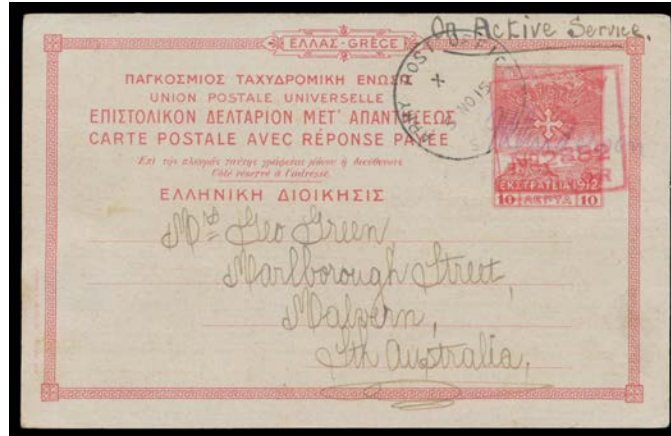 On Active Service.
ΕΛΛΑΣ-GRÈCE
ΠΑΓΚΟΣΜΙΟΣ ΤΑΧΥΔΡΟΜΙΚΗ ΕΝΩΣΙΣ
UNION POSTALE UNIVERSELLE
ΕΠΙΣΤΟΛΙΚΟΝ ΔΕΛΤΑΡΙΟΝ ΜΕΤ' ΑΠΑΝΤΗΣΕΩΣ
CARTE POSTALE AVEC RÉPONSE PAYÉE
Ἐπὶ τῆς πλευρᾶς ταύτης γράφεται μόνον ἡ διεύθυνσις
Côté réservé à l'adresse.
ΕΛΛΗΝΙΚΗ ΔΙΟΙΚΗΣΙΣ
ARMY POST OFFICE
X
NO 15
2882
ΕΚΣΤΡΑΤΕΙΑ 1912
10 ΛΕΠΤΑ 10
Mrs Geo Green,
Marlborough Street,
Malvern,
Sth Australia,